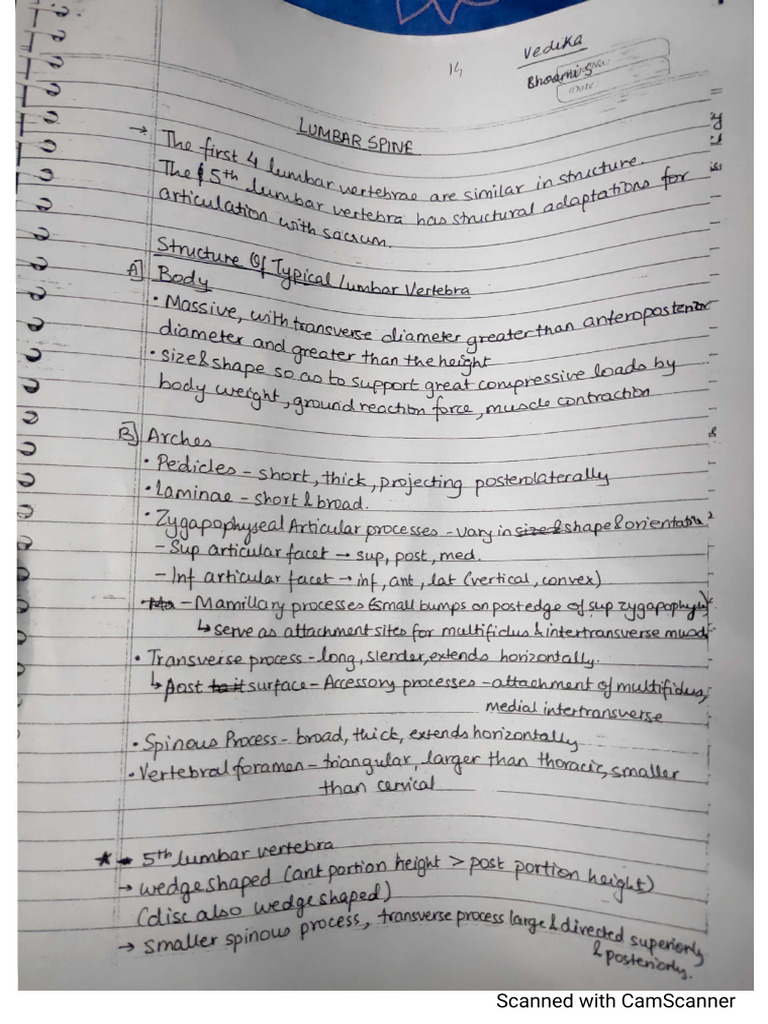 14
Vedika
Bhoomi S
LUMBAR SPINE
→ The first 4 lumbar vertebrae are similar in structure.
The 5th lumbar vertebra has structural adaptations for
articulation with sacrum.
Structure Of Typical Lumbar Vertebra
A] Body
• Massive, with transverse diameter greater than anteroposterior
diameter and greater than the height
• size & shape so as to support great compressive loads by
body weight, ground reaction force, muscle contraction
B] Arches
• Pedicles - short, thick, projecting posterolaterally
• Laminae - short & broad.
• Zygapophyseal Articular processes - vary in size & shape & orientatn
- Sup articular facet → sup, post, med.
- Inf articular facet → inf, ant, lat (vertical, convex)
- Mamillary processes (small bumps on post edge of sup zygapophyseal)
↳ serve as attachment sites for multifidus & intertransverse
• Transverse process - long, slender, extends horizontally.
↳ post surface - Accessory processes - attachment of multifidus,
medial intertransverse
• Spinous Process - broad, thick, extends horizontally
• Vertebral foramen - triangular, larger than thoracic, smaller
than cervical
* - 5th lumbar vertebra
→ wedge shaped (ant portion height > post portion height)
(disc also wedge shaped)
→ smaller spinous process, transverse process large & directed superiorly
& posteriorly.
Scanned with CamScanner